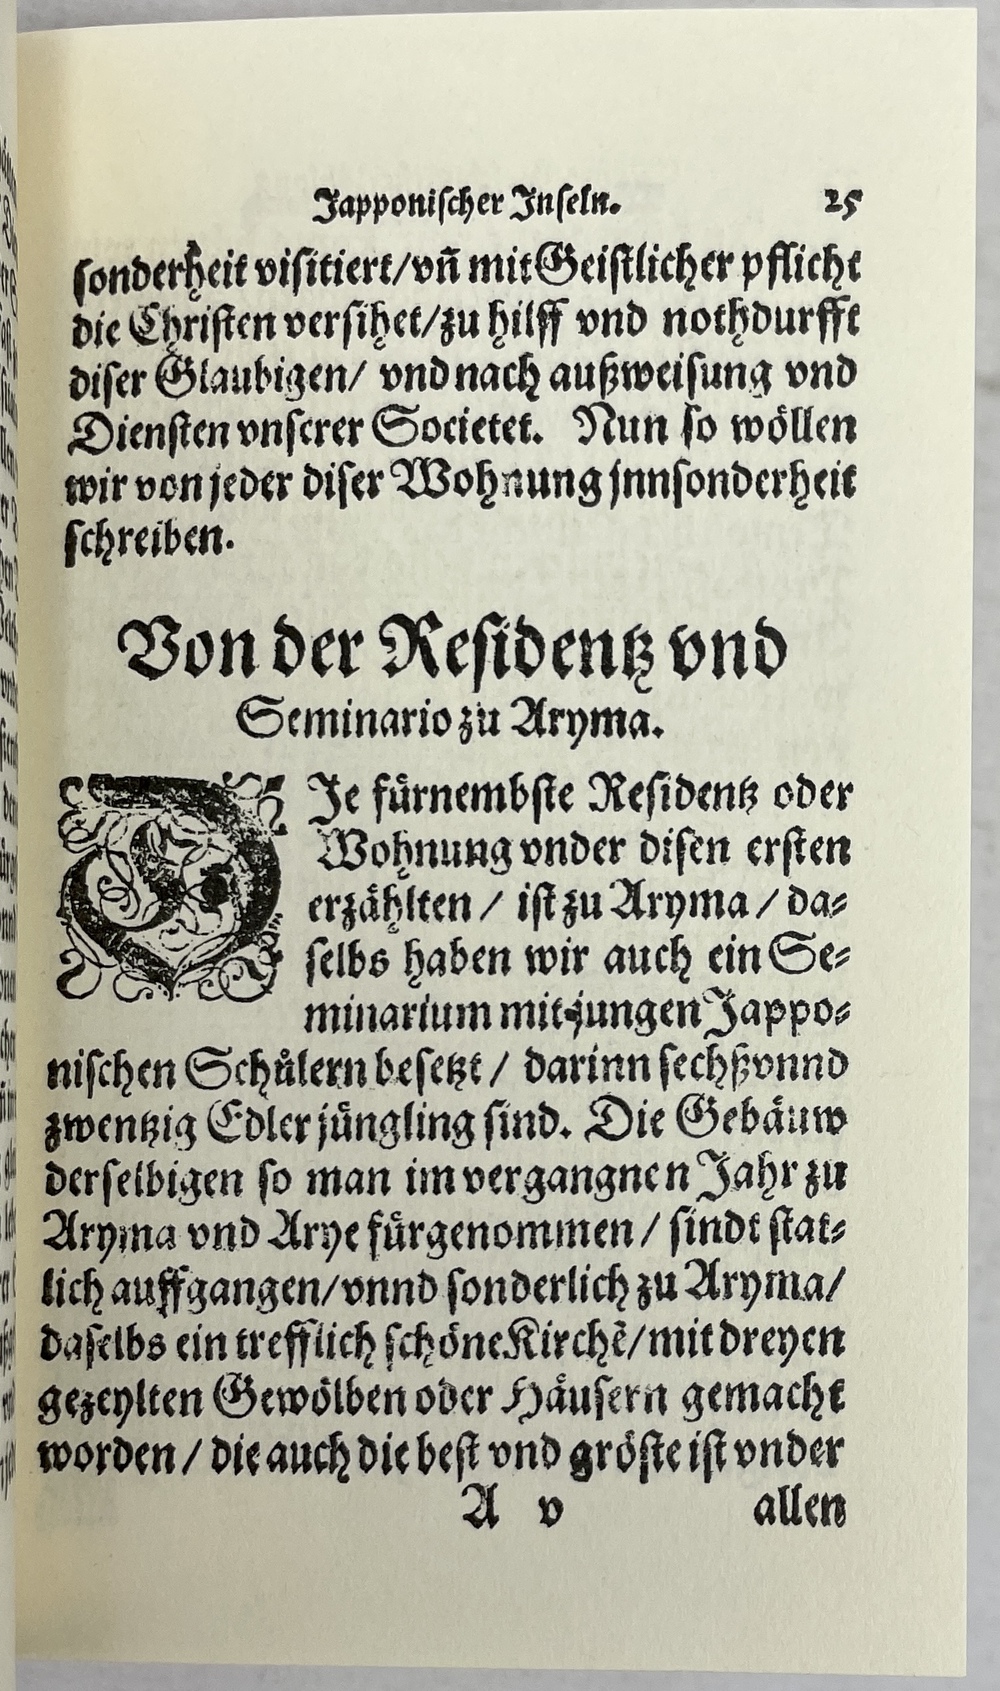 Japponischer Inseln. 25
sonderheit visitiert/vñ mit Geistlicher pflicht
die Christen versihet/zu hilff vnd nothdurfft
diser Glaubigen/ vnd nach außweisung vnd
Diensten vnserer Societet. Nun so wöllen
wir von jeder diser Wohnung jnnsonderheit
schreiben.
Von der Residentz vnd
Seminario zu Aryma.
DJe fürnembste Residentz oder
Wohnung vnder disen ersten
erzählten / ist zu Aryma / da⸗
selbs haben wir auch ein Se⸗
minarium mit jungen Jappo⸗
nischen Schülern besetzt / darinn sechß vnnd
zwentzig Edler jüngling sind. Die Gebäuw
derselbigen so man im vergangnen Jahr zu
Aryma vnd Arye fürgenommen / sindt stat⸗
lich auffgangen/vnnd sonderlich zu Aryma/
daselbs ein trefflich schöne Kirchē/mit dreyen
gezeylten Gewölben oder Häusern gemacht
worden / die auch die best vnd gröste ist vnder
A v allen